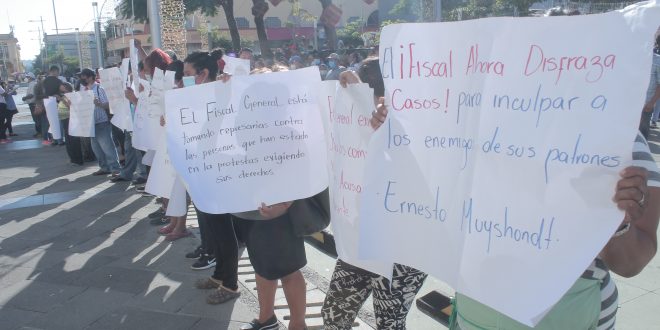 El Fiscal General está
tomando represarias contra
las personas que han estado
en la protestas exigiendo
sus derechos.
El ¡Fiscal Ahora Disfraza
Casos! para inculpar a
los enemigo de sus patrones
Ernesto Muyshondt.